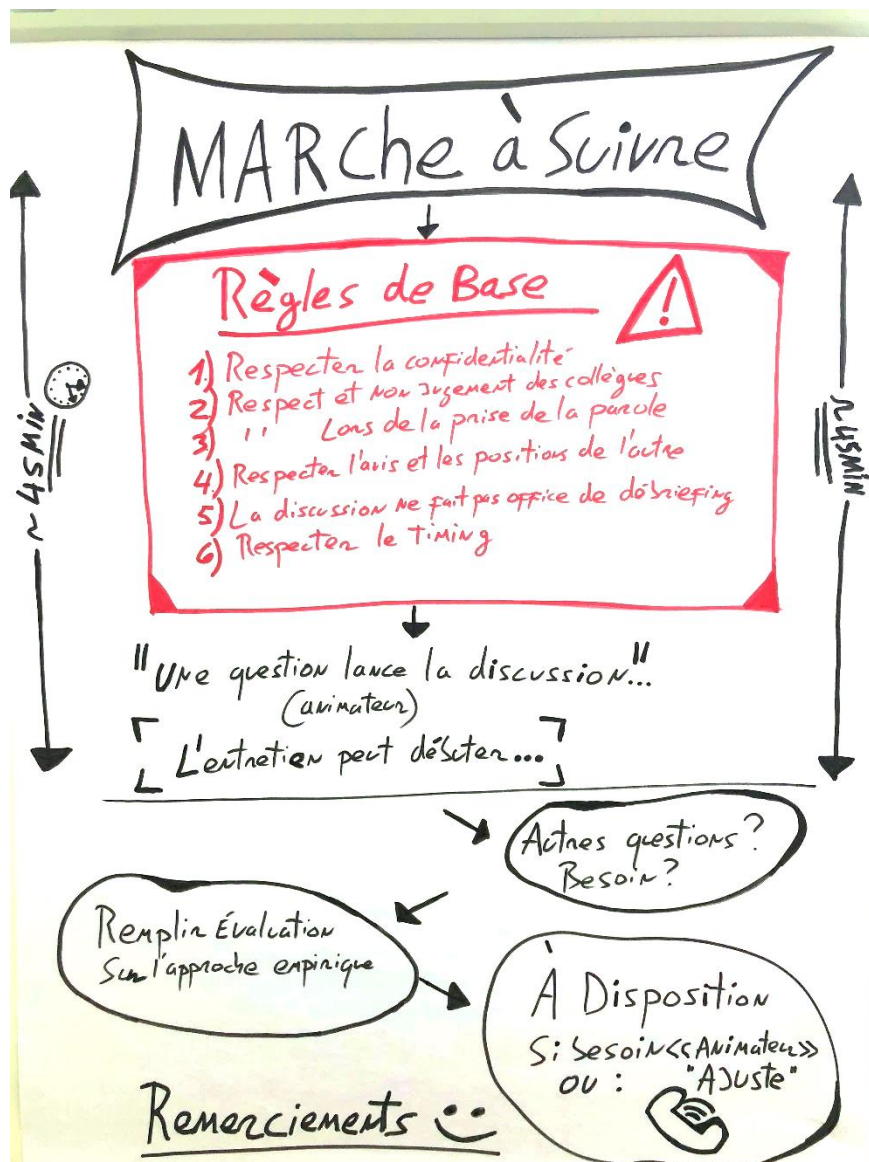 MARche à Suivre
Règles de Base
!
1) Respecter la confidentialité
2) Respect et non jugement des collègues
3) '' Lors de la prise de la parole
4) Respecter l'avis et les positions de l'autre
5) La discussion ne fait pas office de débriefing
6) Respecter le Timing
~45MIN
~45MIN
"Une question lance la discussion..."
(animateur)
L'entretien peut débuter...
Autres questions?
Besoin?
Remplir Évaluation
Sur l'approche empirique
À Disposition
Si besoin <<Animateur>>
ou : "AJuste"
Remerciements